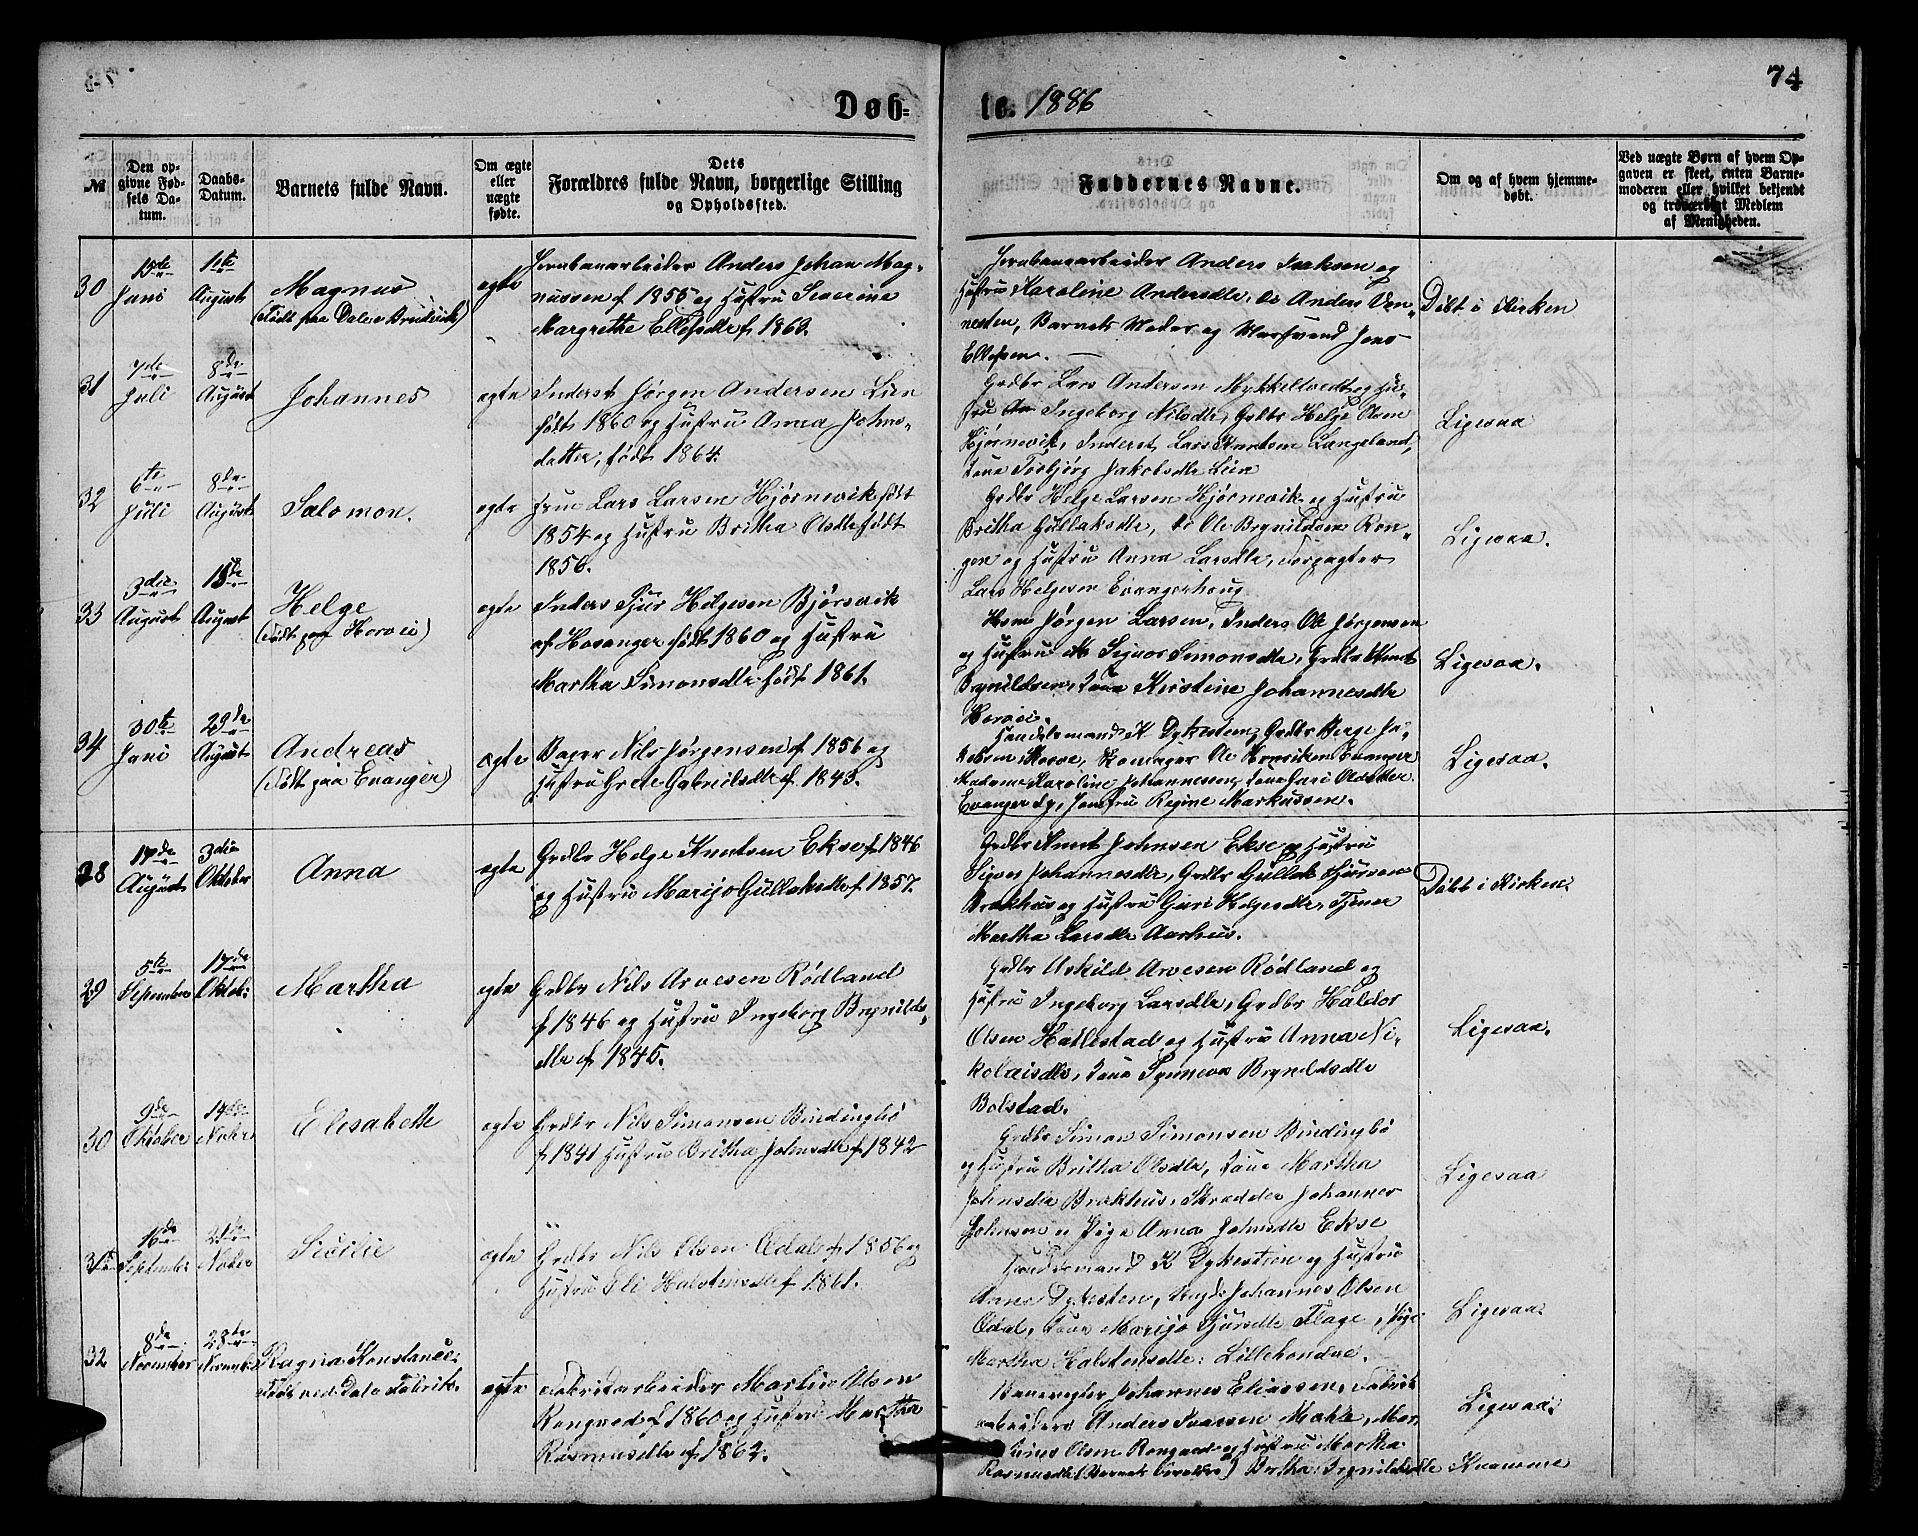 Døb-
te. 1886
74
№
Den op-
givne Fød-
sels Da-
tum.
Daabs-
Datum.
Barnets fulde Navn.
Om ægte
eller
uægte
fødte.
Dets
Forældres fulde Navn, borgerlige Stilling
og Opholdssted.
Faddernes Navne.
Om og af hvem hjemme-
døbt.
Ved uægte Børn af hvem Op-
gaven er skeet, enten Barne-
moderen eller hvilket bekjendt
og troværdigt Medlem
af Menigheden.
30
15de
Juni
1ste
August
Magnus
(født paa Dalse Bruvik)
ægte
Jernbanarbeider Anders Johan Mag-
nussen f. 1855 og Hustru Severine
Margrethe Ellefsdtr f. 1863.
Jernbanearbeider Anders Isaksen og
Hustru Karoline Andersdtr, do Anders Ven-
nesten, Barnets Moder og Ellefsen.
Døbt i Kirken
31
7de
Juli
8de
August
Johannes
ægte
Inderst Jørgen Andersen Lien
født 1860 og Hustru Anna Johns-
datter, født 1864.
Grdbr Lars Andersen Mykkeltvedt og Hu-
stru Ingeborg Nilsdtr, Grdbr Helge Olsen
Hjørnevik, Inderst Lars Knutsen Langeland,
Torbjørg Jakobsdtr Lien
Ligesaa
32
6te
Juli
8de
August
Salomon.
ægte
Lars Larsen Hjørnevik født
1854 og Hustru Britha Olsdtr født
1856.
Grdbr Helge Larsen Hjørnevik og Hustru
Britha Gullaksdtr, do Ole Brynildsen Ron-
gen og Hustru Anna Larsdtr, Forpagter
Lars Helgesen Evangerhoug
Ligesaa.
33
3die
August
15de
August
Helge
(født paa Horvei)
ægte
Inders Sjur Helgesen Bjørsvik
af Hosanger født 1860 og Hustru
Martha Simonsdtr født 1861.
Jørgen Larsen, Inders Ole Jørgensen
og Hustru Signor Simonsdtr, Grdbr Knut
Brynildsen, Kirstine Johannesdtr
Horvei.
Ligesaa.
34
30te
Juni
29de
August
Andreas
(født paa Evanger)
ægte
Bager Nils Jørgensen f. 1856 og
Hustru Grete Gabrielsdtr f. 1843.
Handelsmand K Dykesteen, Grdbr Berge Ja-
kobsen Horve, Ole Henriksen Evanger
Madam Karoline Johannessen, Olsdatter
Evanger og Jomfru Regine Markussen.
Ligesaa.
28
17de
August
3die
Oktober
Anna
ægte
Grdbr Helge Knutsen Ekse f. 1846
og Hustru Marijo Gullaksdtr f. 1857.
Grdbr Knut Johnsen Ekse og Hustru
Johannesdtr, Grdbr Gullak Sjursen
Brækhus og Hustru Guri Helgesdtr, Tjener
Martha Larsdtr Aarhus.
Døbt i Kirken.
29
5te
September
17de
Oktob:
Martha
ægte
Grdbr Nils Arvesen Rødland
f. 1846 og Hustru Ingeborg Brynilds-
dtr f. 1845.
Grdbr Askild Arvesen Rødland og
Hustru Ingeborg Larsdtr, Grdbr Haldor
Olsen Hatlestad og Hustru Anna Ni-
kolaisdtr, Synneva Brynildsdtr
Bolstad.
Ligesaa.
30
9de
Oktober
14de
Nobr
Elisabeth
ægte
Grdbr Nils Simonsen Bindingbø
f. 1841 Hustru Britha Johnsdtr f. 1842
Grdbr Simon Simonsen Bindingbø
og Hustru Britha Olsdtr, Martha
Johnsdtr Brækhus, Skrædder Johannes
Johnsen og Pige Anna Johnsdtr Ekse
Ligesaa
31
16de
September
21de
Nober
Sicilie
ægte
Grdbr Nils Olsen Ødal f. 1856 og
Hustru Eli Halstensdtr f. 1861.
Handelsmand K Dykesteen og Hustru
Anna Dykesten, Johannes Olsen
Ødal, Marijo Sjursdtr Flage, Pige
Martha Halstensdtr Lillehondve.
Ligesaa.
32
8de
November
28de
Novemb
Ragna Konstance:
født ved Dale Fabrik.
ægte
Fabrikarbeider Martin Olsen
Rongved f. 1860 og Hustru Martha
Rasmusdtr f. 1862.
Banevogter Johannes Eliassen, Fabrik
arbeider Anders Ivarsen Mahle, Mar
tinus Olsen Rongved og Hustru Martha
Rasmusdtr (Barnets Forældre) Bertha Brynildsdtr Kvamme
Ligesaa.